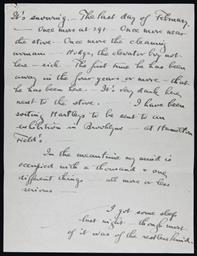 It's snowing. The last day of February.
— Once more at 291. Once more near
the stove. Once more the cleaning
woman. Hodge, the elevator boy not
here — sick. The first time he has been
away in the four years or more — that
he has been here. It's very dark here
next to the stove. I have been
Hartleys to be sent to an
exhibition in Brooklyn — at Hamilton
Field's.
In the meantime my mind is
occupied with a thousand & one
different things — all more or less
serious.
I got some sleep
last night, though most
of it was of the restless kind.